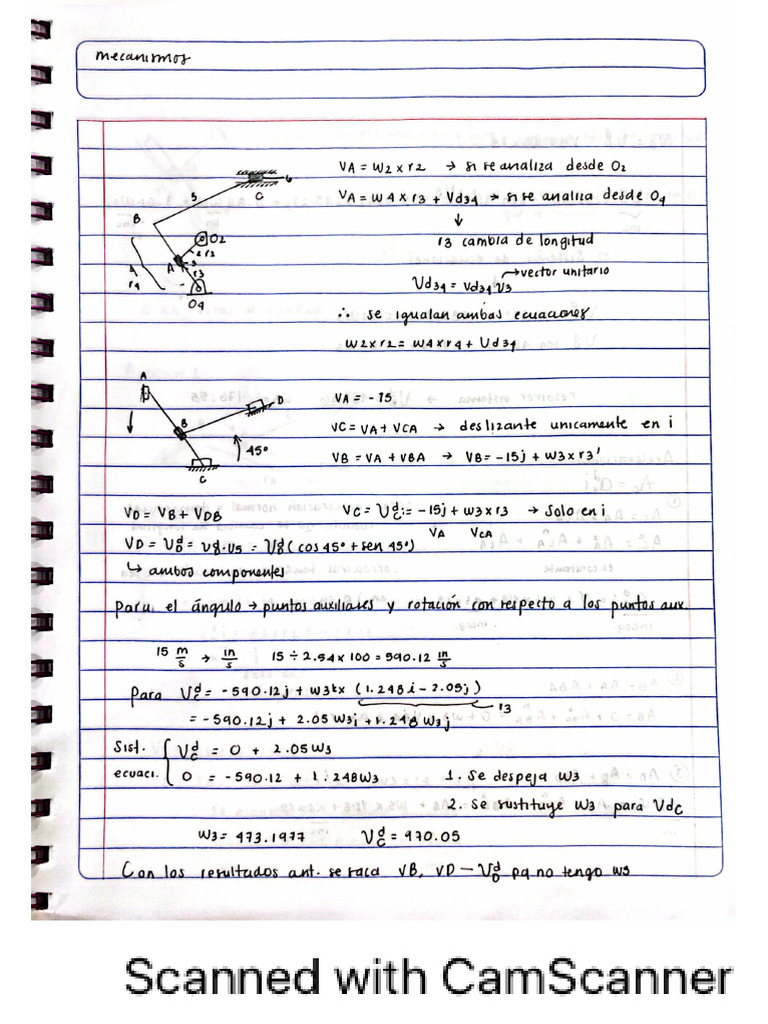 mecanismos
VA = W2 x r2 → si se analiza desde O2
VA = W4 x r3 + Vd34 → si se analiza desde O4
↓
r3 cambia de longitud
→ vector unitario
Vd34 = Vd34 V3
∴ se igualan ambas ecuaciones
W2 x r2 = W4 x r4 + Vd34
B
5
6
C
O2
2 r2
A
3
r3
4
r4
O4
A
B
D
45°
C
VA = -15
VC = VA + VCA → deslizante unicamente en i
VB = VA + VBA → VB = -15j + W3 x r3'
VD = VB + VDB
VC = V^d_C = -15j + W3 x r3 → solo en i
VA VCA
VD = V^d_D = V^d_D · U5 = V^d_D (cos 45° + sen 45°)
↳ ambos componentes
Para el ángulo → puntos auxiliares y rotación con respecto a los puntos aux.
15 m/s → in/s 15 ÷ 2.54 x 100 = 590.12 in/s
Para V^d_C = -590.12j + W3k x (1.248i - 2.05j)
r3
= -590.12j + 2.05 W3i + 1.248 W3j
Sist. ecuaci.
V^d_C = 0 + 2.05W3
0 = -590.12 + 1.248W3
1. Se despeja W3
2. Se sustituye W3 para VdC
W3 = 473.1977 V^d_C = 970.05
Con los resultados ant. se saca VB, VD - V^d_D pq no tengo W5
Scanned with CamScanner